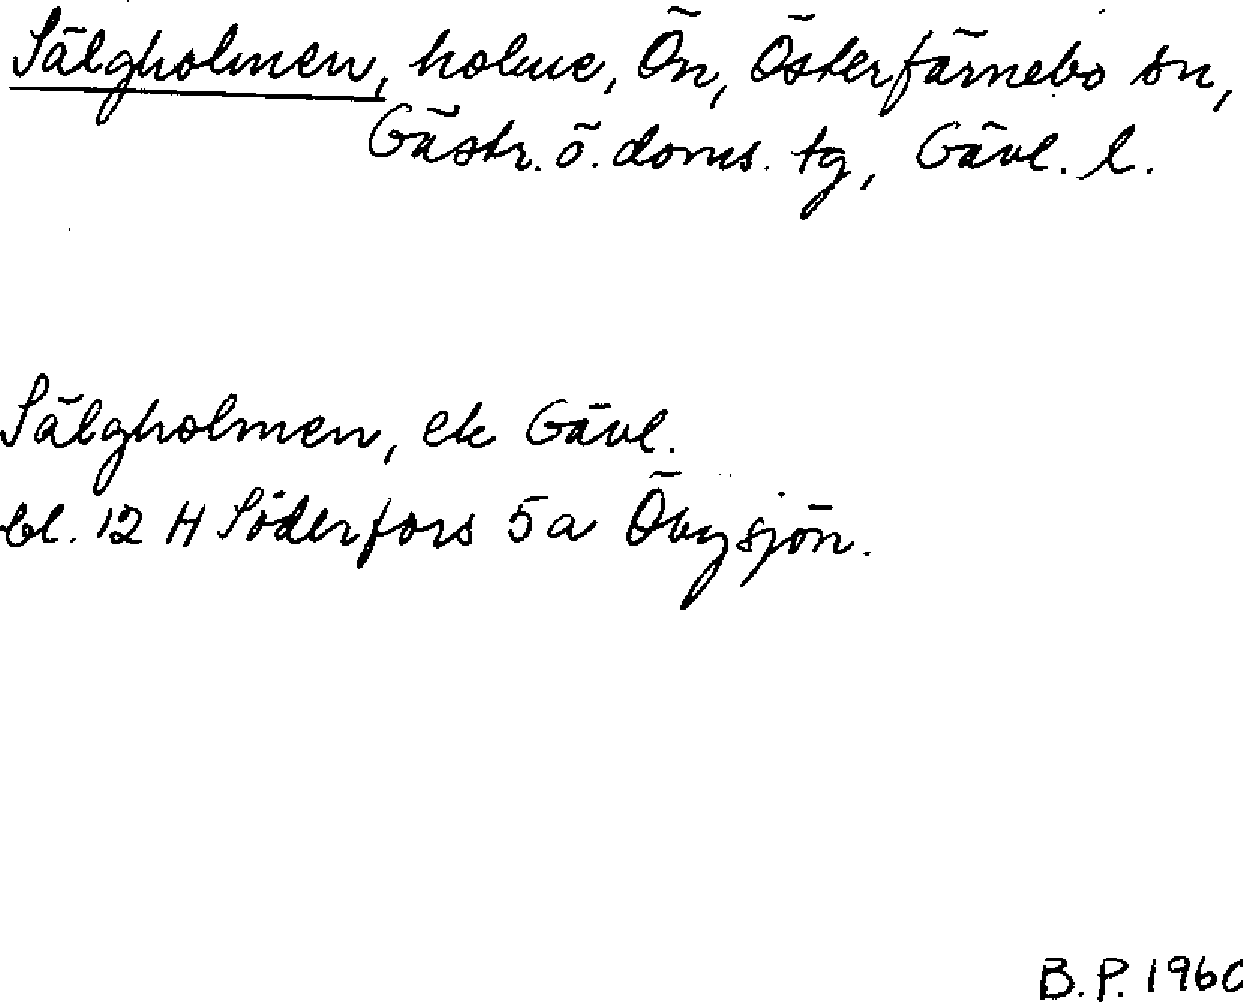 Sälgholmen, holme, Ön, Österfärnebo sn,
Gästr. ö. doms. tg, Gävl. l.
Sälgholmen, ek Gävl.
bl. 12 H Söderfors 5a Öbysjön.
B.P. 1960